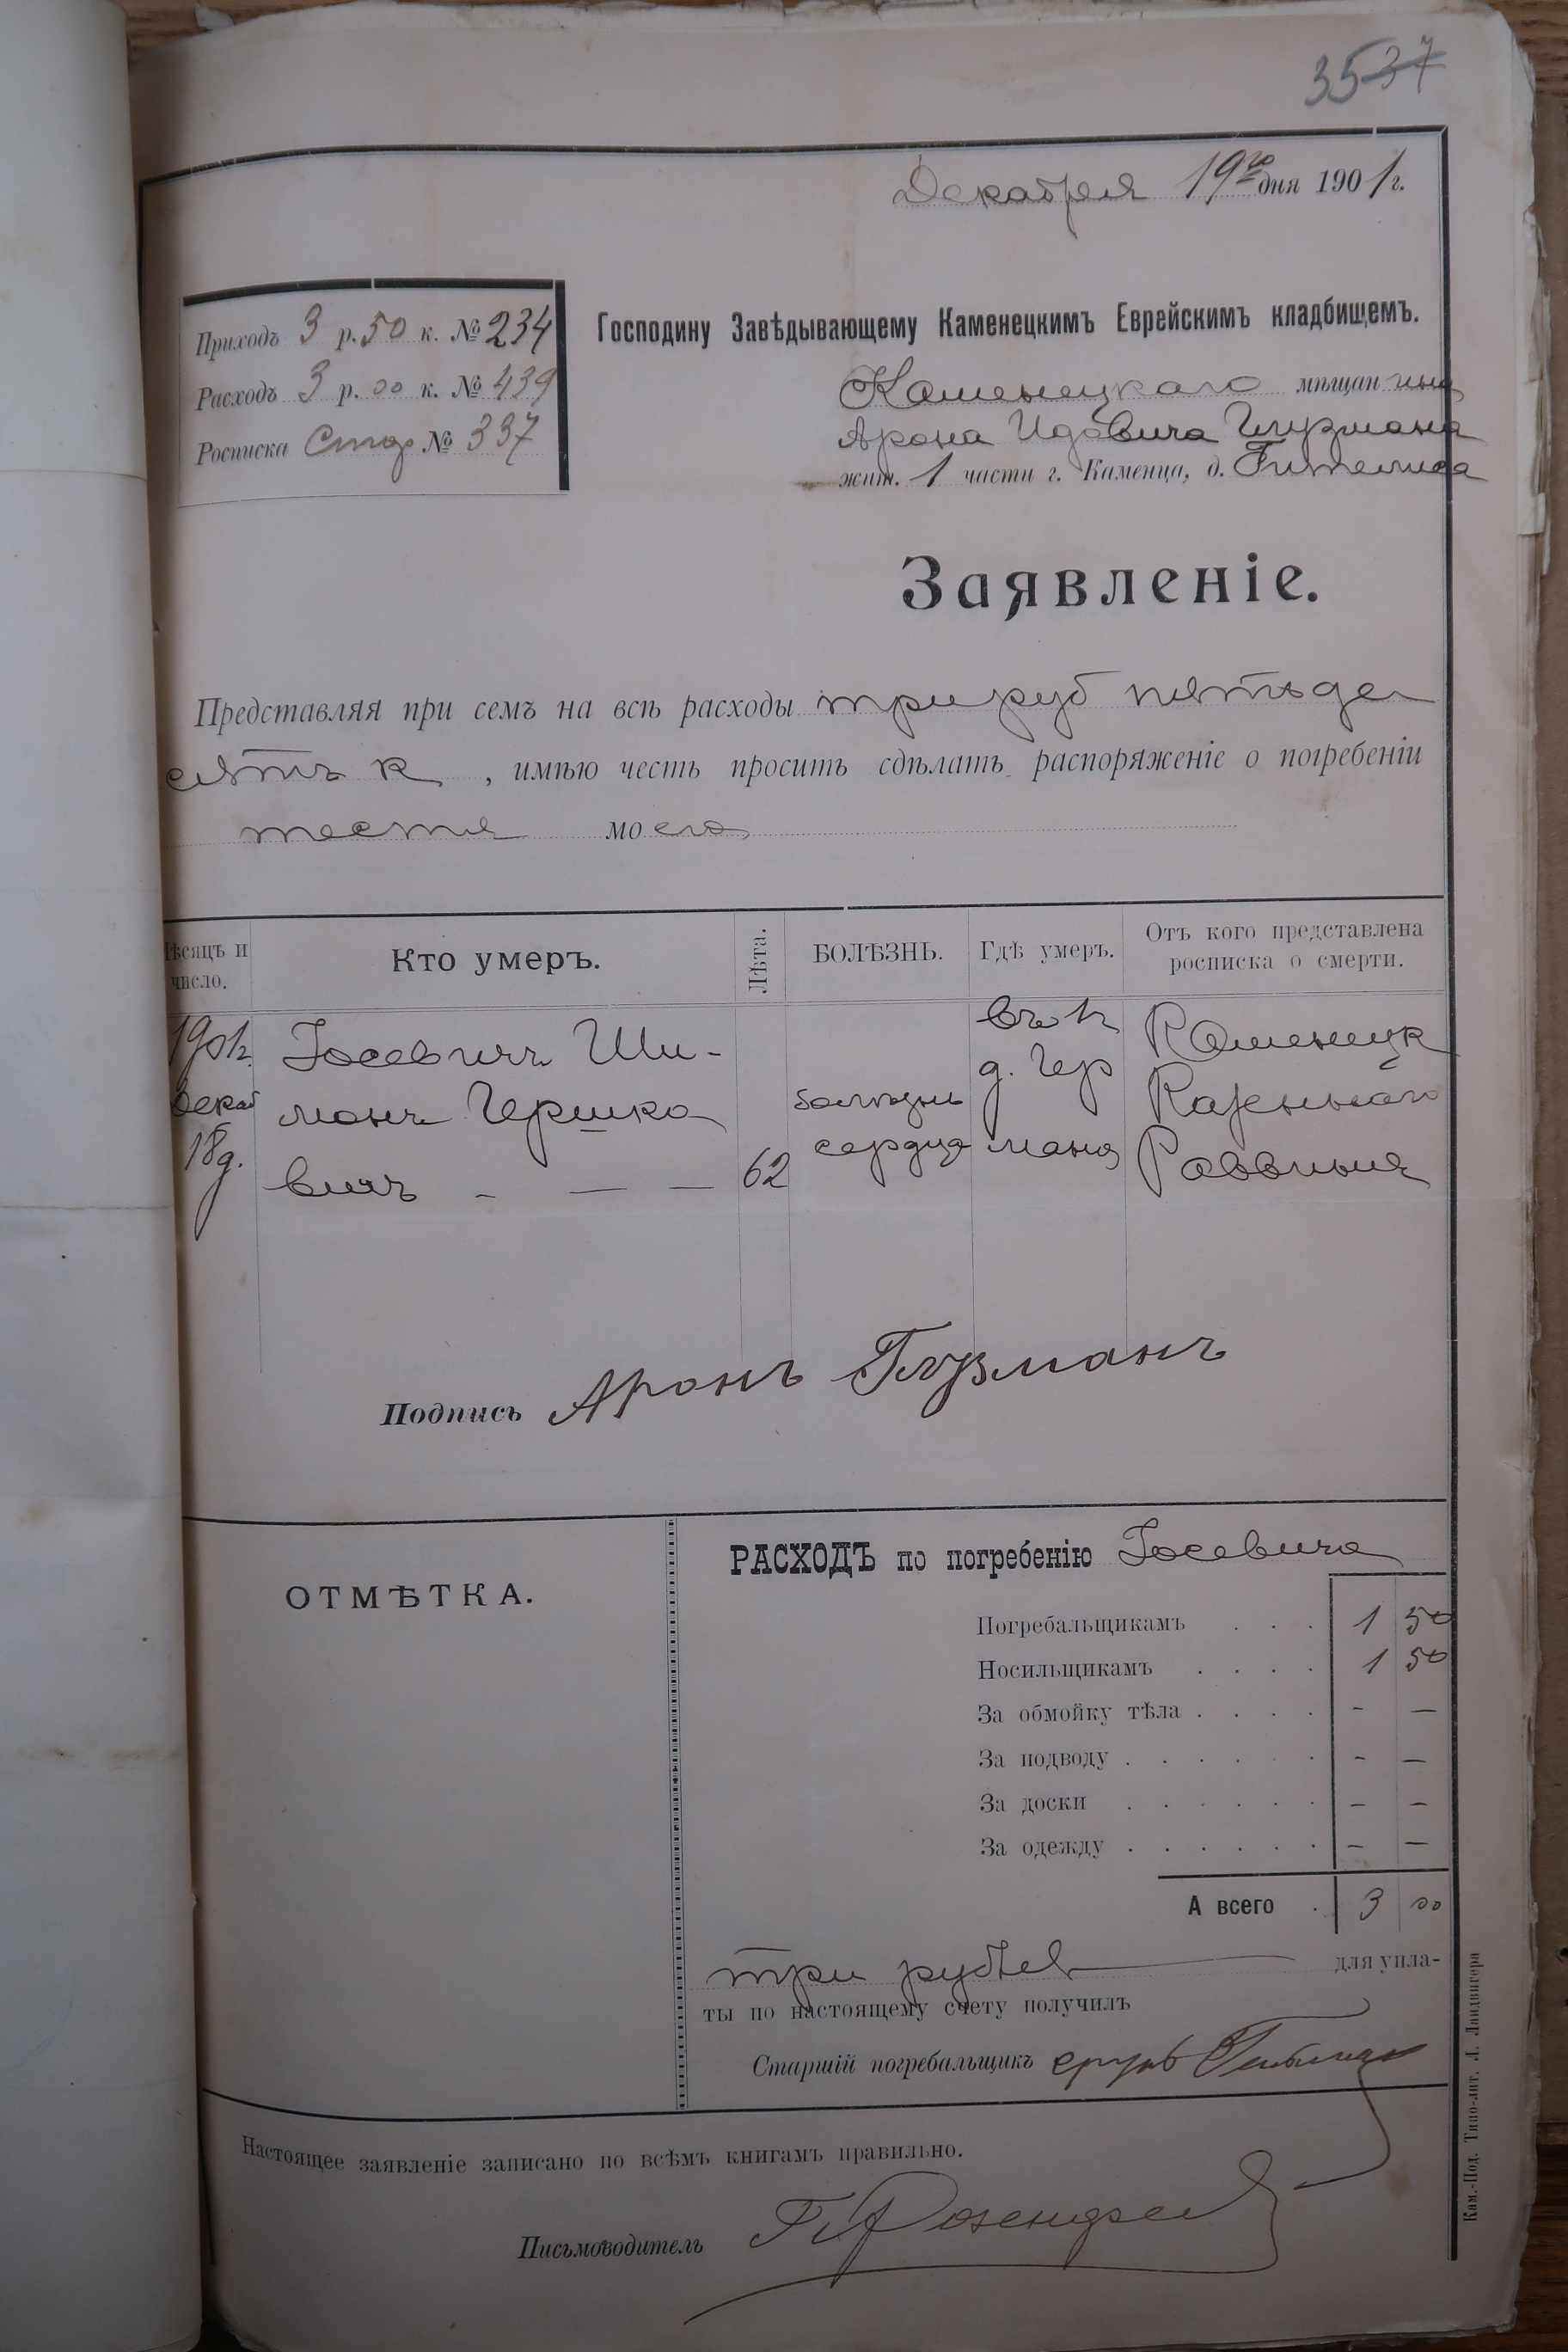 35 37
Декабря 19го дня 1901 г.
Приходъ 3 р. 50 к. № 234
Расходъ 3 р. 00 к. № 439
Росписка Стар № 337
Господину Завѣдывающему Каменецкимъ Еврейскимъ кладбищемъ.
Каменецкаго мѣщанина
Арона Идовича Глузмана
жит. 1 части г. Каменца, д. Гителиса
Заявленіе.
Представляя при семъ на всѣ расходы три руб пятьде
сятъ к , имѣю честь просить сдѣлать распоряженіе о погребеніи
тестя моего
Мѣсяцъ и число. Кто умеръ. Лѣта. БОЛѢЗНЬ. Гдѣ умеръ. Отъ кого представлена росписка о смерти.
1901г. Іосевичъ Ши- въ 1ч Каменецк
декаб монъ Гершко болѣзнь д. Гер Казеннаго
18д. вичъ - — — 62 сердца мана Раввина
Подпись Аронъ Глузманъ
ОТМѢТКА.
РАСХОДЪ по погребенію Іосевича
Погребальщикамъ . . . 1 50
Носильщикамъ . . . . 1 50
За обмойку тѣла . . . . - —
За подводу . . . . . - —
За доски . . . . . . - —
За одежду . . . . . . - —
А всего . 3 00
три рублей для упла-
ты по настоящему счету получилъ
Старшій погребальщикъ
Настоящее заявленіе записано по всѣмъ книгамъ правильно.
Письмоводитель Розенфел
Кам.-Под. Типо-лит. Л. Ландвигера